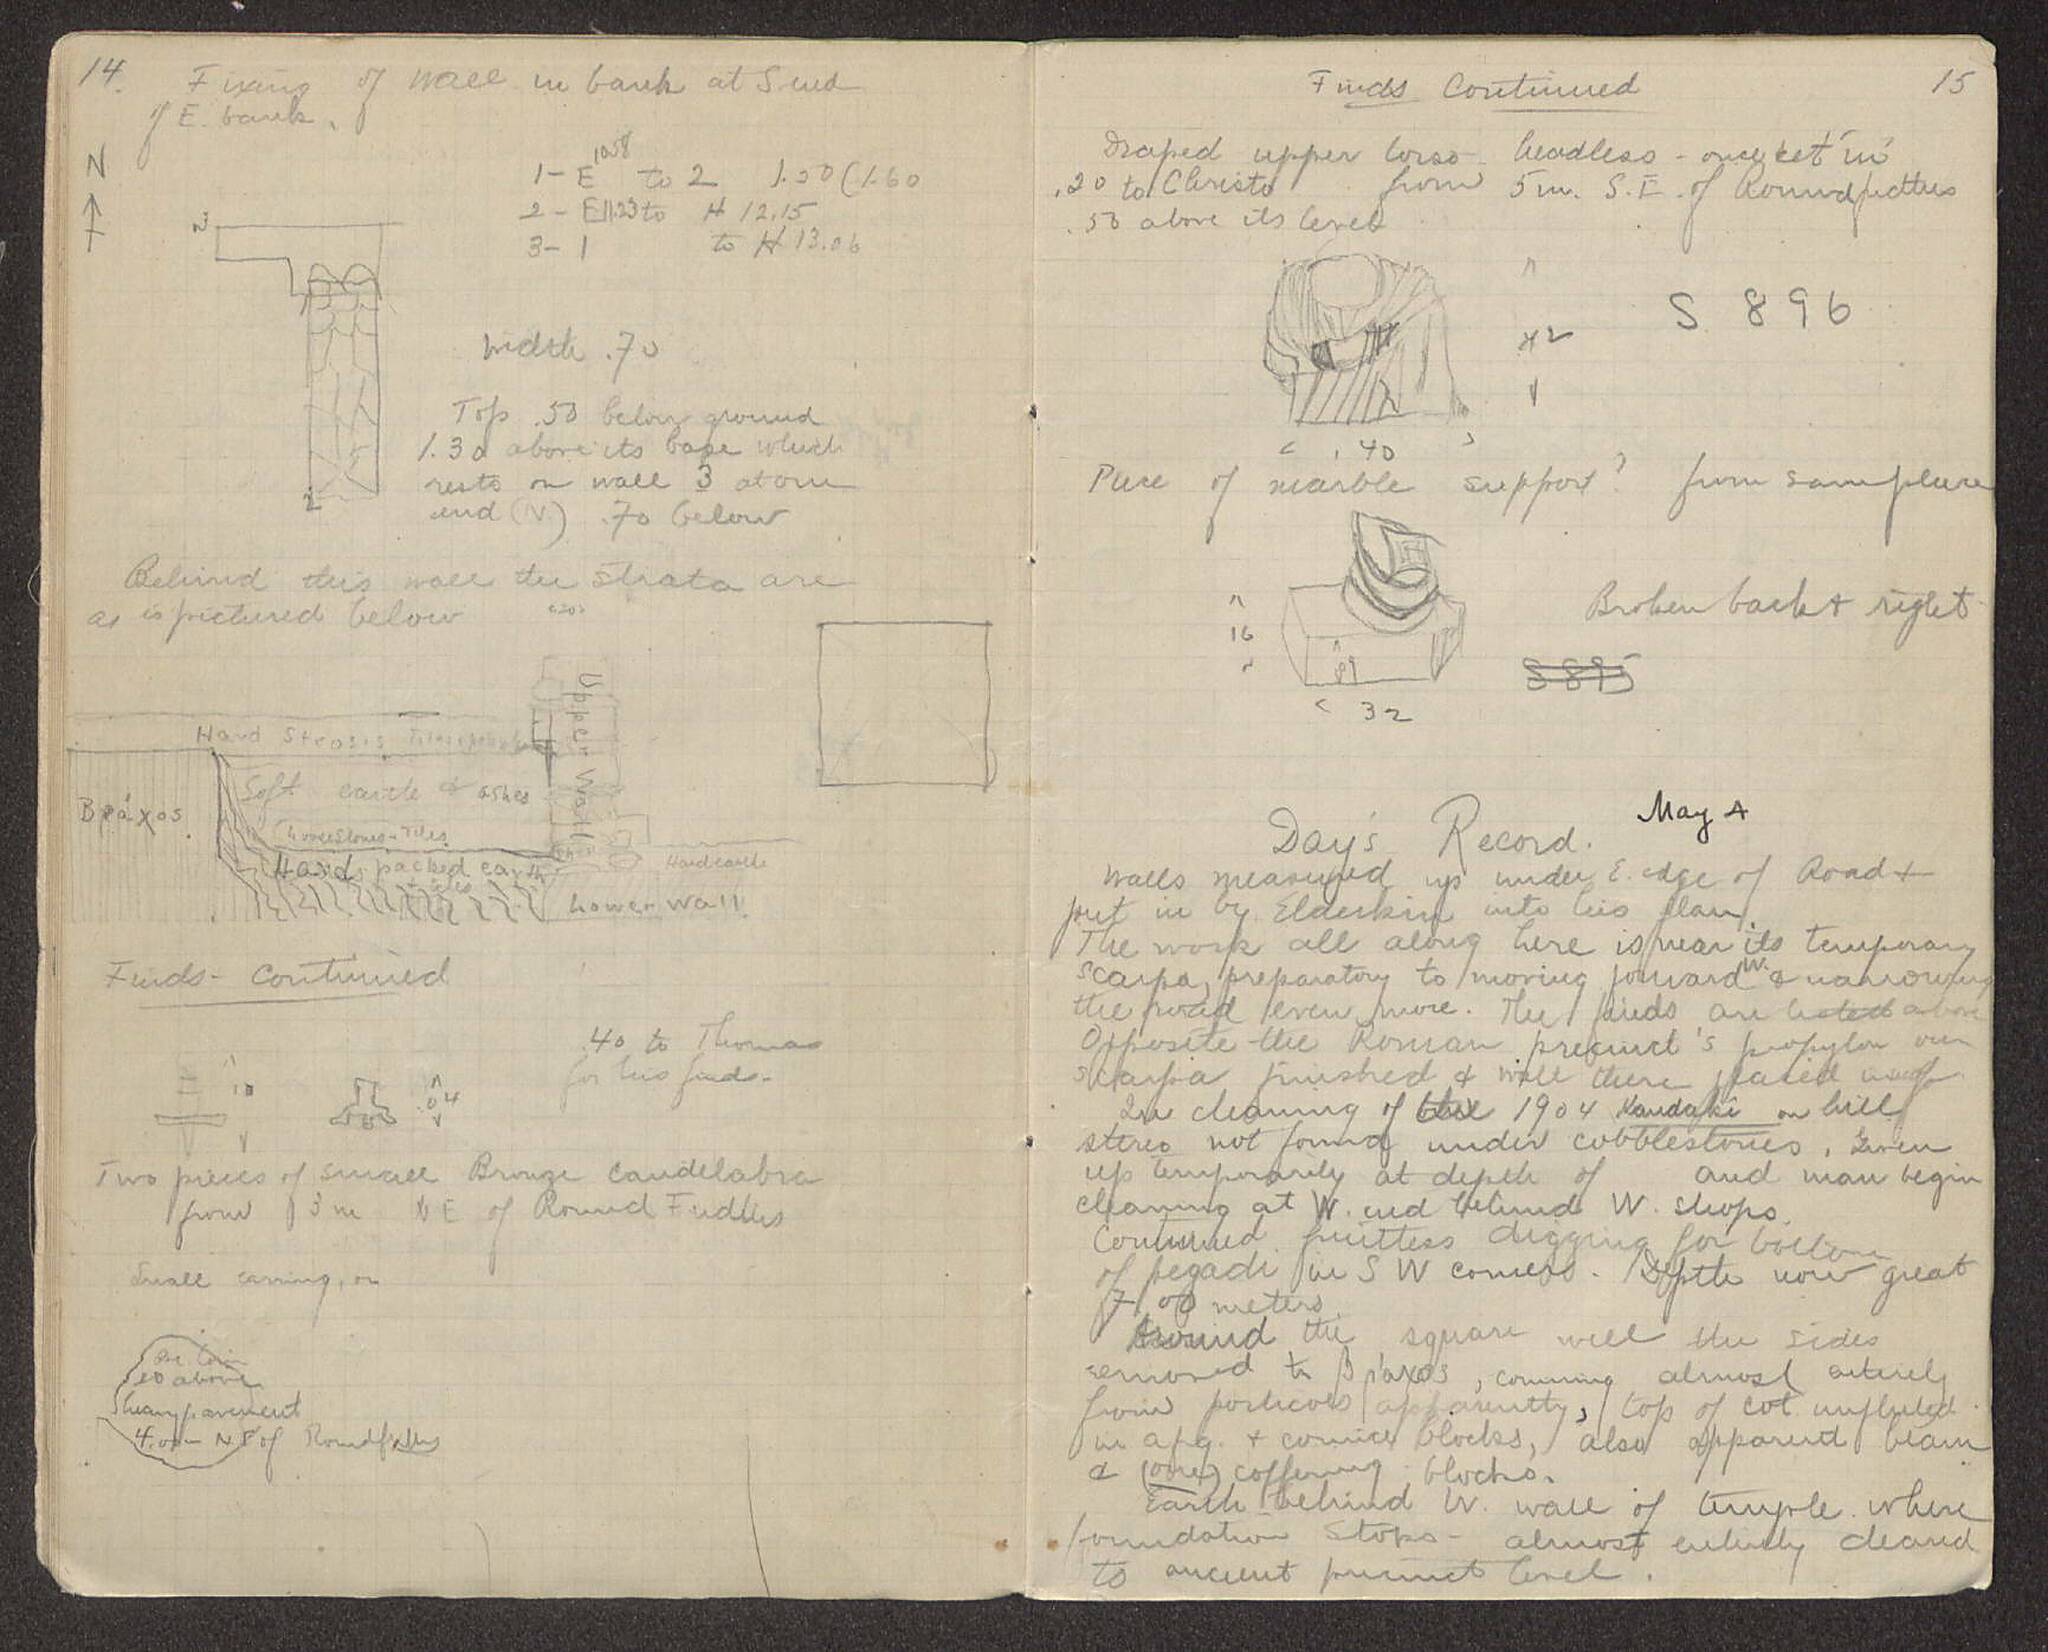 14.
Fixing of wall in bank at S end
of E. bank.
N
1058
1 - E to 2 1.50 (1.60
2 - E 11.23 to H 12.15
3 - 1 to H 13.06
N
width .70
Top .50 below ground
1.30 above its base which
rests on wall 3 at our
end (N.) .70 below
2
Behind this wall the strata are
as is pictured below
Upper Wall
Hard Steosis
Soft earth & ashes
Βράχος
Loose Stones + Tiles
Hard packed earth
+ tiles
Hard earth
Lower Wall
Finds - Continued
.40 to Thomas
for his finds -
10
.04
Two pieces of small Bronze Candelabra
from 3 m NE of Round Fudttus
Small earring, on
above
heavy pavement
4.00 - NE of
15
Finds Continued
Draped upper torso - headless - once set in
.20 to Christo from 5 m. S.E. of
.50 above its level
S 896
42
.40
Piece of marble support? from same place
Broken back & right
16
S 895
32
May 4
Day's Record.
Walls measured up under E. edge of Road &
put in by Elderkin into his plan.
The work all along here is near its temporary
scarpa, preparatory to moving forward W. & narrowing
the road even more. The finds are listed above
Opposite the Roman precinct's propylon our
scarpa finished & will there
In cleaning of the 1904 Xandaki on hill
stereo not found under cobblestones. Given
up temporarily at depth of and man begin
cleaning at W. end behind W. shops.
Continued fruitless digging for bottom
of pegadi in S W corner. Depth now great
7.00 meters
Around the square well the sides
removed to βράχος, coming almost entirely
from porticoes apparently, top of col. unfluted
in apg. + cornice blocks, also apparent beam
& (one) coffering blocks.
Earth behind W. wall of temple where
foundation stops - almost entirely cleared
to ancient precinct level.